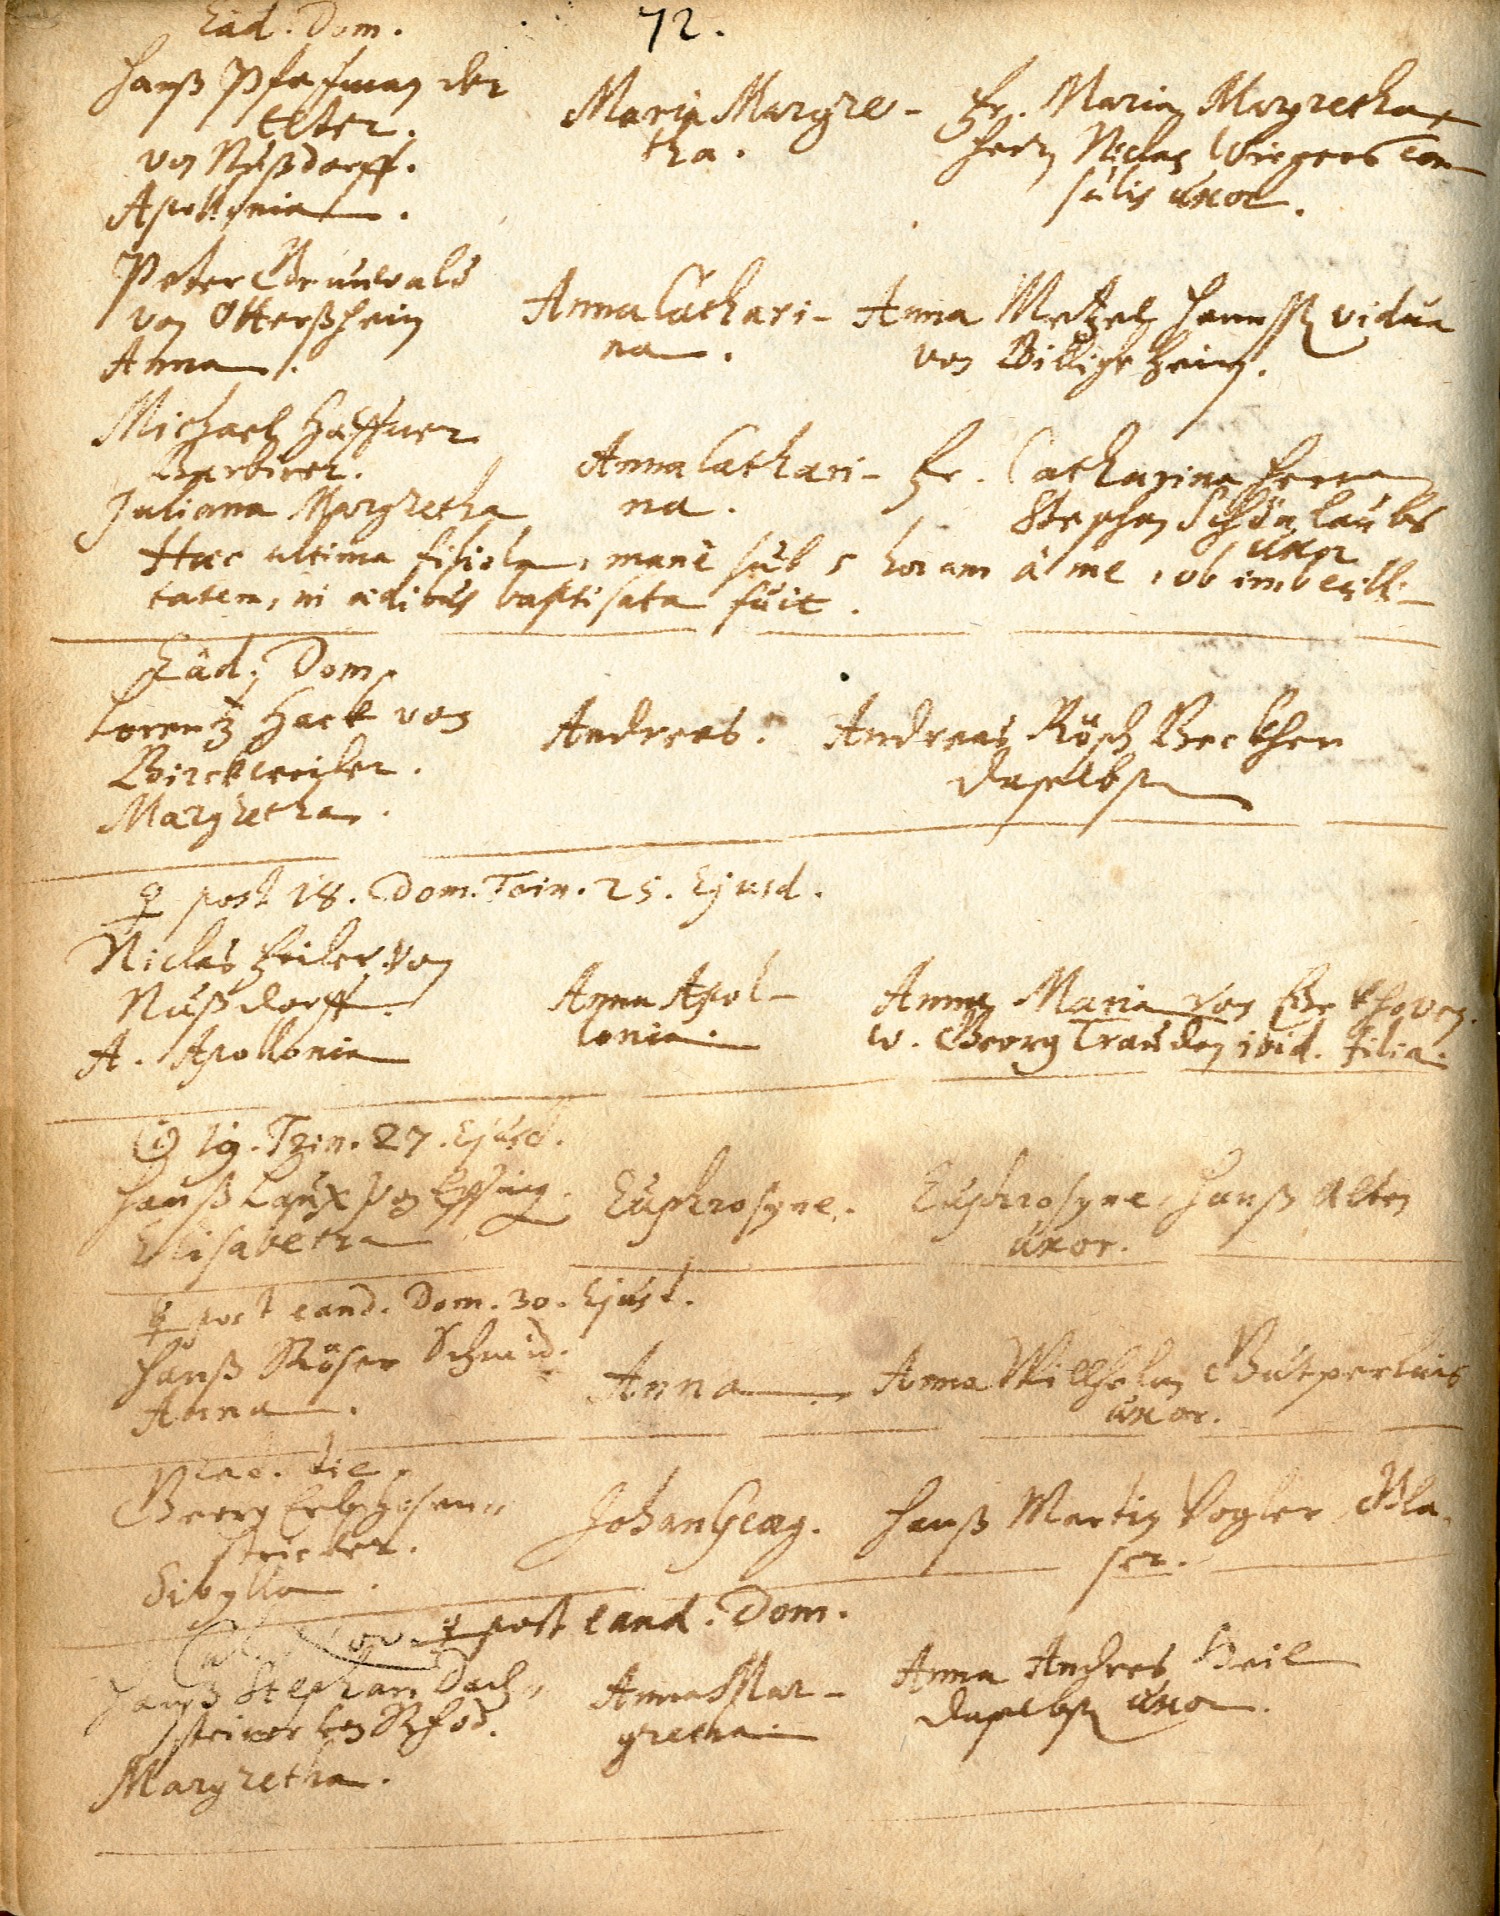 72.
Ead. Dom.
Hanß Pfaffman der
Elter.
von Nußdorff.
Apollonia.
Maria Margre-
tha.
Fr. Maria Margretha,
Herrn Niclas Con-
sulis uxor.
Peter Grunwald
von Otterßheim
Anna.
Anna Cathari-
na.
Anna Metzel Hannß vidua
von Billigheim.
Michael Haffner
Barbirer.
Juliana Margretha
Anna Cathari-
na.
Fr. Catharina Herrn
Stephan Schönlaubs
uxor
Haec ultima filiola, manè sub 5 horam à me, ob imbecilli-
tatem, in aedibus baptisata fuit.
Ead. Dom.
Lorentz Hack von
Birckweiler.
Margretha.
Andreas.
Andreas Rösch Beckher
daselbst
♀ post 18. Dom. Trin. 25. Ejusd.
Niclas Heiler von
Nußdorff.
A. Apollonia
Anna Apol-
lonia.
Anna Maria von
w. Georg Trauden ibid. filia.
☉ 19. Trin. 27. Ejusd.
Hanß Laux von
Elisabetha
Euphrosyne.
Euphrosyne, Hanß Alten
uxor.
post eand. Dom. 30. Ejusd.
Hanß Röser Schmid.
Anna.
Anna
Anna Willhelm Gutperlins
uxor.
Ead. die.
Georg Erb, Hosen-
stricker.
Sibylla.
Johan Georg.
Hanß Martin Vogler Gla-
ser.
Cal. Nov. ♀ post eand. Dom.
Hanß Stephan Dach-
Margretha.
Anna Mar-
gretha.
Anna Andres Heil
daselbst uxor.